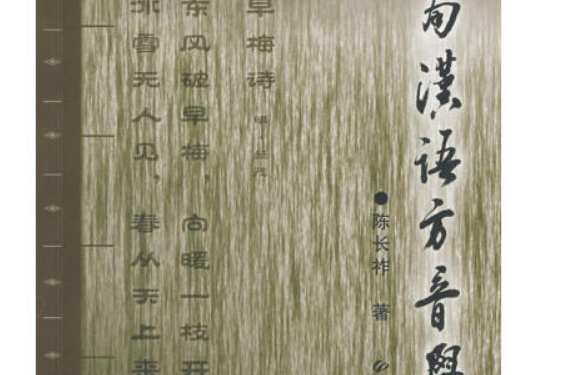 南漢語方音
●陈长祚 著
早梅诗
明·兰茂
东风破早梅，向暖一枝开
冰雪无人见，春从天上来